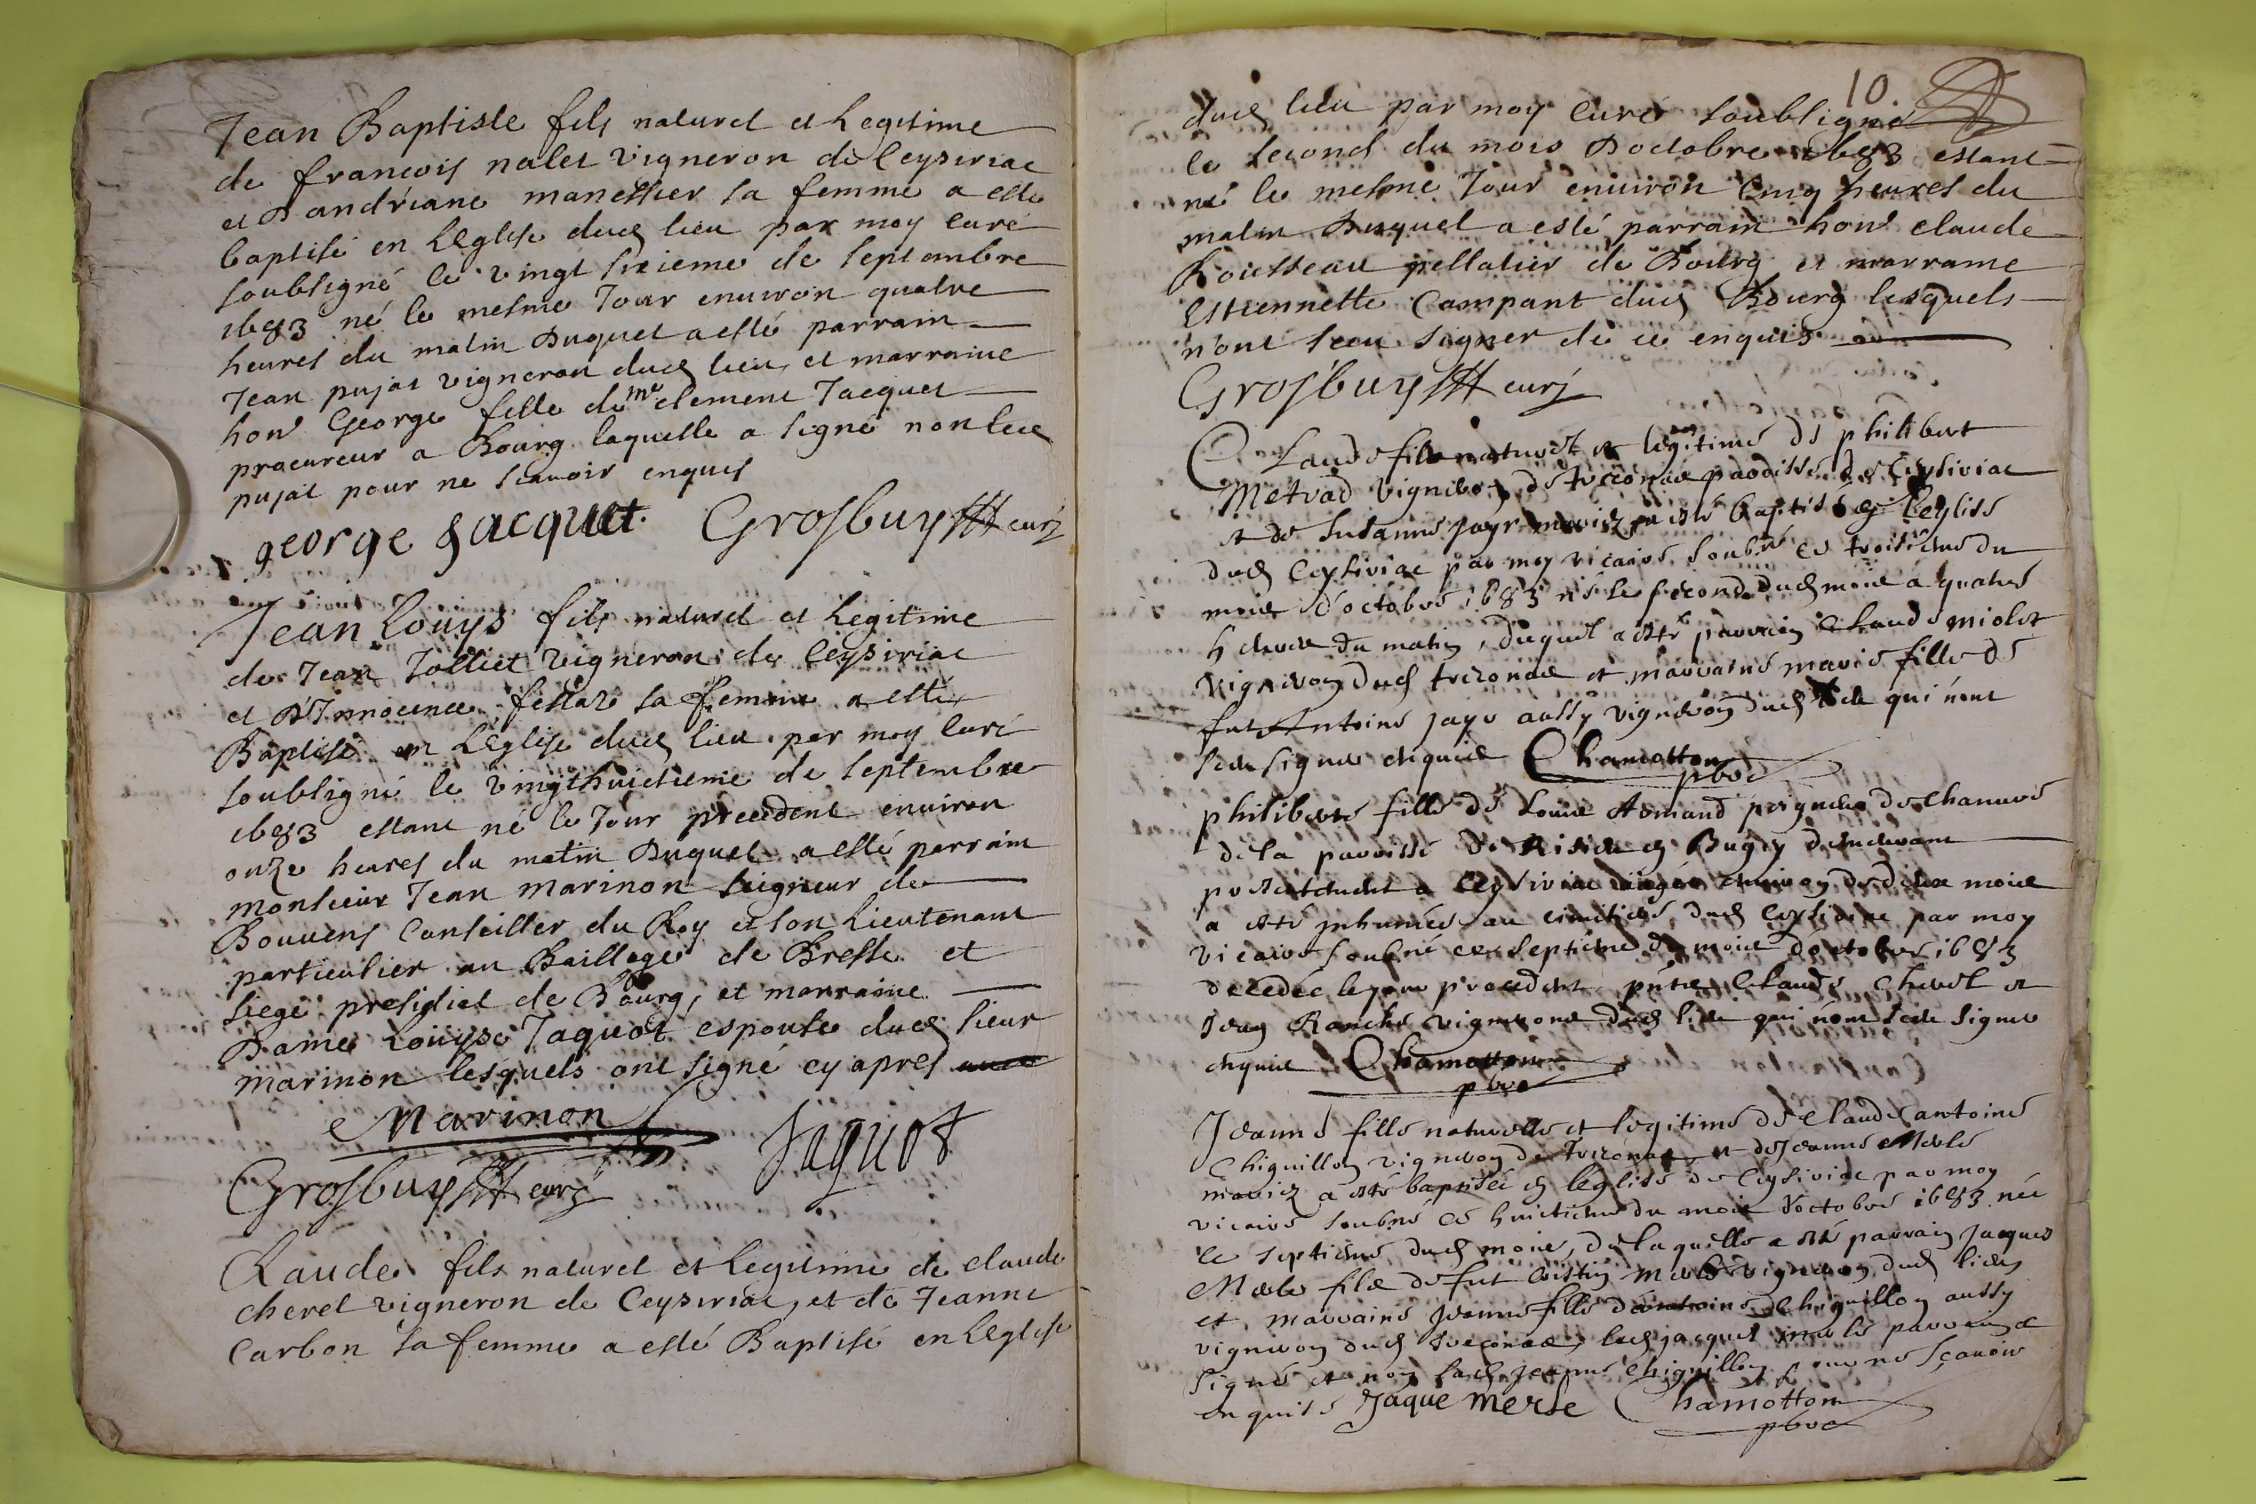 Jean Baptiste fils naturel et Legitime
de francois nalet vigneron de Ceysiriac
et D'andréane manessier sa femme a esté
baptisé en L'Eglise dud lieu par moy curé
soubsigné le vingt sixieme de septembre
1683 né le mesme Jour enuiron quatre
heures du matin Duquel a esté parrain
Jean pujat vigneron dud lieu et marraine
hon George fille de me clement Jacquet
procureur a Bourg laquelle a signé non led
pujat pour ne scauoir enquis
george Jacquet Grosbuy curé
Jean Louys fils naturel et Legitime
de Jean Jolliet vigneron de Ceysiriac
et D'Innocence sa femme a esté
Baptisé en L'Eglise dud lieu par moy Curé
soubsigné le vingthuictieme de septembre
1683 estant né le Jour precedent enuiron
onze heures du matin Duquel a esté parrain
monsieur Jean marinon seigneur de
Bouuens Conseiller du Roy et son Lieutenant
particulier au Baillage de Bresse et
siege presidial de Bourg, et marraine
Dame Louyse Jaquot espouse dud sieur
marinon lesquels ont signé cy apres
Marinon
Jaquot
Grosbuy curé
Claude fils naturel et Legitime de claude
cheret vigneron de Ceysiriac, et de Jeanne
Carbon sa femme a esté Baptisé en L'Eglise
10.
dud lieu par moy Curé soubsigné
le second du mois D'octobre 1683 estant
né le mesme Jour enuiron Cinq heures du
matin Duquel a esté parrain hon claude
Rousseau pellatier de Bourg et marraine
Estiennette Campant dud Bourg lesquels
n'ont sceu signer de ce enquis
Grosbuy curé
Claude fils naturel et legitime de philibert
Metrad vigneron de trecónas parroisse de Ceysiriac
et de Susanne Jayr mariez a esté baptisé en l'eglise
dud Ceysiriac par moy vicaire soubné ce troisiéme du
mois d'octobre 1683 né le second dud mois a quatre
heures du matin, duquel a esté parrain Claude miolet
vigneron dud treconas et marraine marie fille de
fut Antoine Jayr aussy vigneron dud qui n'ont
sceu signer enquis Chamotton
pbre
philiberte fille de Louis Armand peigneur de chanure
de la parroisse de en Bugey demeurant
presentement a Ceysiriac aagée enuiron de deux mois
a esté inhumée au cimitiere dud Ceysiriac par moy
vicaire soubné ce septiéme du mois d'octobre 1683
decedée le jour precedent, pntz Claude Cheret et
Jean Ranche vignerons dud lieu qui n'ont sceu signer
enquis Chamotton
pbre
Jeanne fille naturelle et legitime de Claude antoine
Chiquillon vigneron de Treconas et de Jeanne Merle
mariez a esté baptisée en l'eglise de Ceysiriac par moy
vicaire soubné ce huictiéme du mois d'octobre 1683 née
le septiéme dud mois, de laquelle a esté parrain Jacques
Merle fils de fut merle vigneron dud lieu
et marraine Jeanne fille d'antoine Chiquillon aussy
vigneron dud treconas, led jacques merle parrain a
signé et non lad jeanne Chiquillon pour ne sçauoir
enquise Jaque Merle Chamotton
pbre